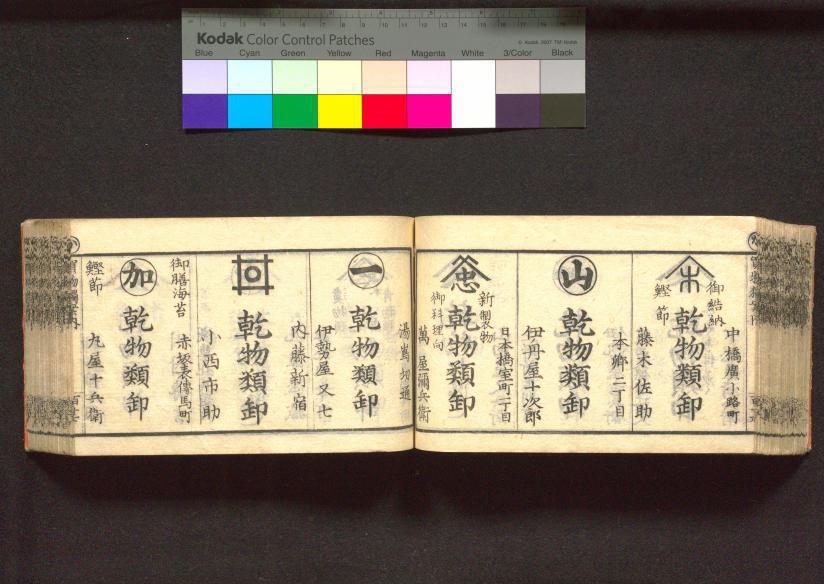 Kodak Color Control Patches
© Kodak, 2007 TM: Kodak
Blue Cyan Green Yellow Red Magenta White 3/Color Black
中橋廣小路町
御結納
乾物類卸
鰹節
藤木佐助
本郷二丁目
山
乾物類卸
伊丹屋十次郎
日本橋室町二丁目
新製物
忠
乾物類卸
御料理向
萬屋彌兵衛
湯嶌切通
一
乾物類卸
伊勢屋又七
内藤新宿
乾物類卸
小西市助
赤坂表傳馬町
御膳海苔
加
乾物類卸
鰹節
丸屋十兵衛